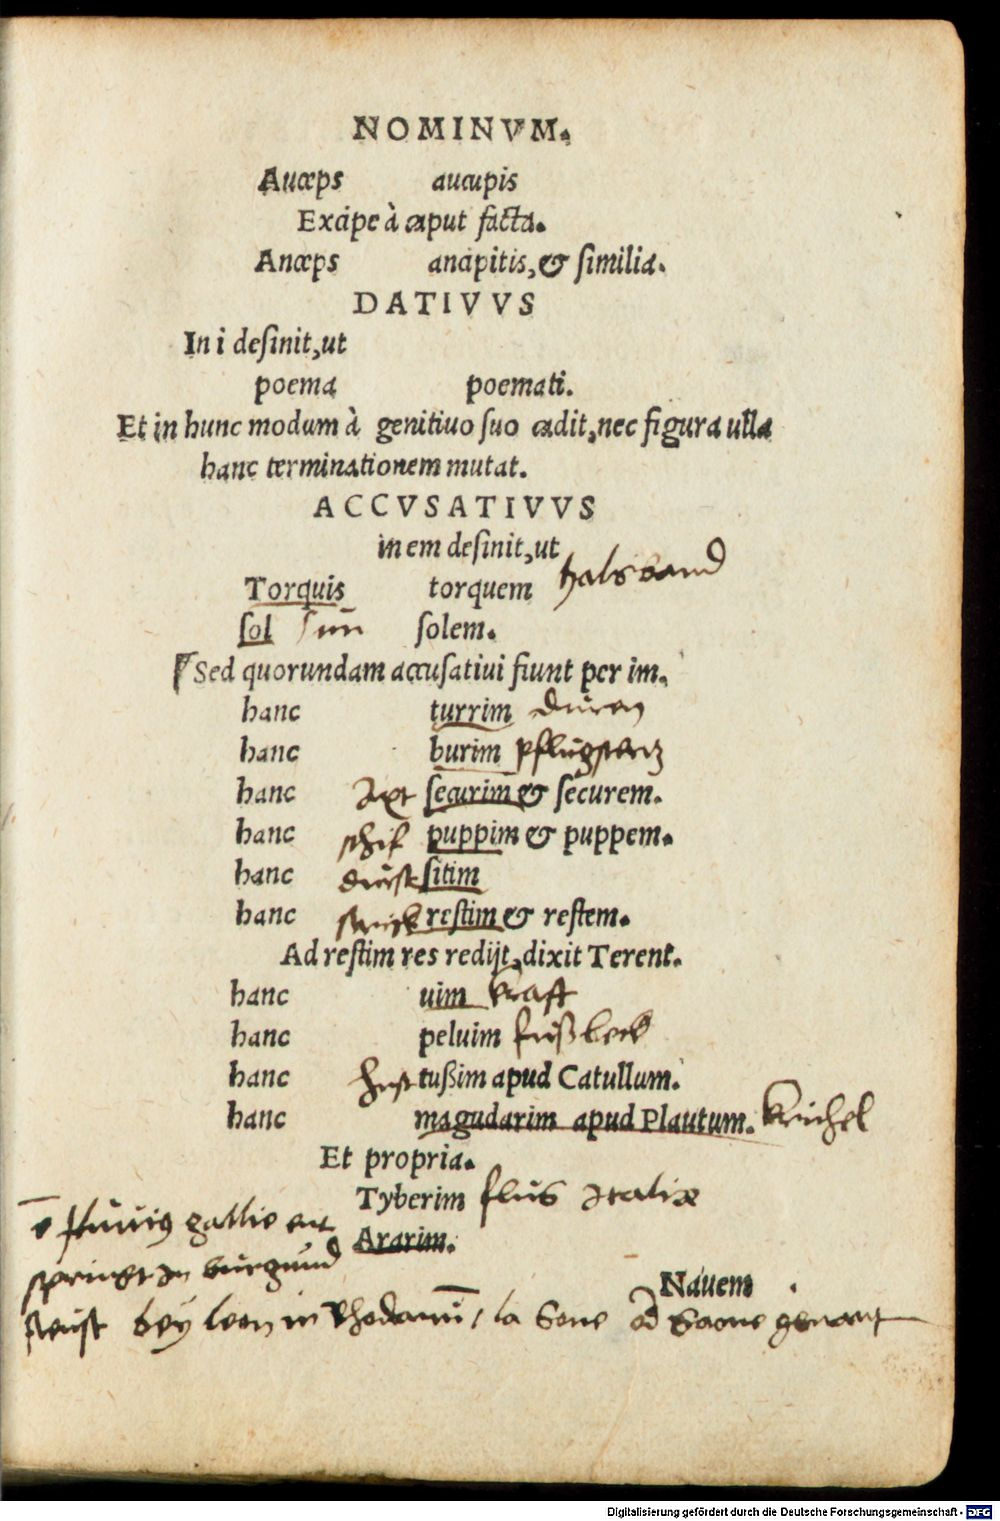 NOMINVM.
Auceps aucupis
Excipe à caput facta.
Anceps ancipitis, & similia.
DATIVVS
In i desinit, ut
poema poemati.
Et in hunc modum à genitiuo suo cadit, nec figura ulla
hanc terminationem mutat.
ACCVSATIVVS
in em desinit, ut
Torquis torquem halsband
sol sun solem.
Sed quorundam accusatiui fiunt per im.
hanc turrim
hanc burim pflugstertz
hanc Axt securim & securem.
hanc schif puppim & puppem.
hanc durst sitim
hanc strick restim & restem.
Ad restim res redijt, dixit Terent.
hanc uim krafft
hanc peluim fußbeck
hanc hust tußim apud Catullum.
hanc magudarim apud Plautum.
Et propria.
Tyberim flus Italiæ
fluuius gallie ent Ararim.
springt in burgund
Nauem
bey leon in Rhodanum, la Sone od Saone genant